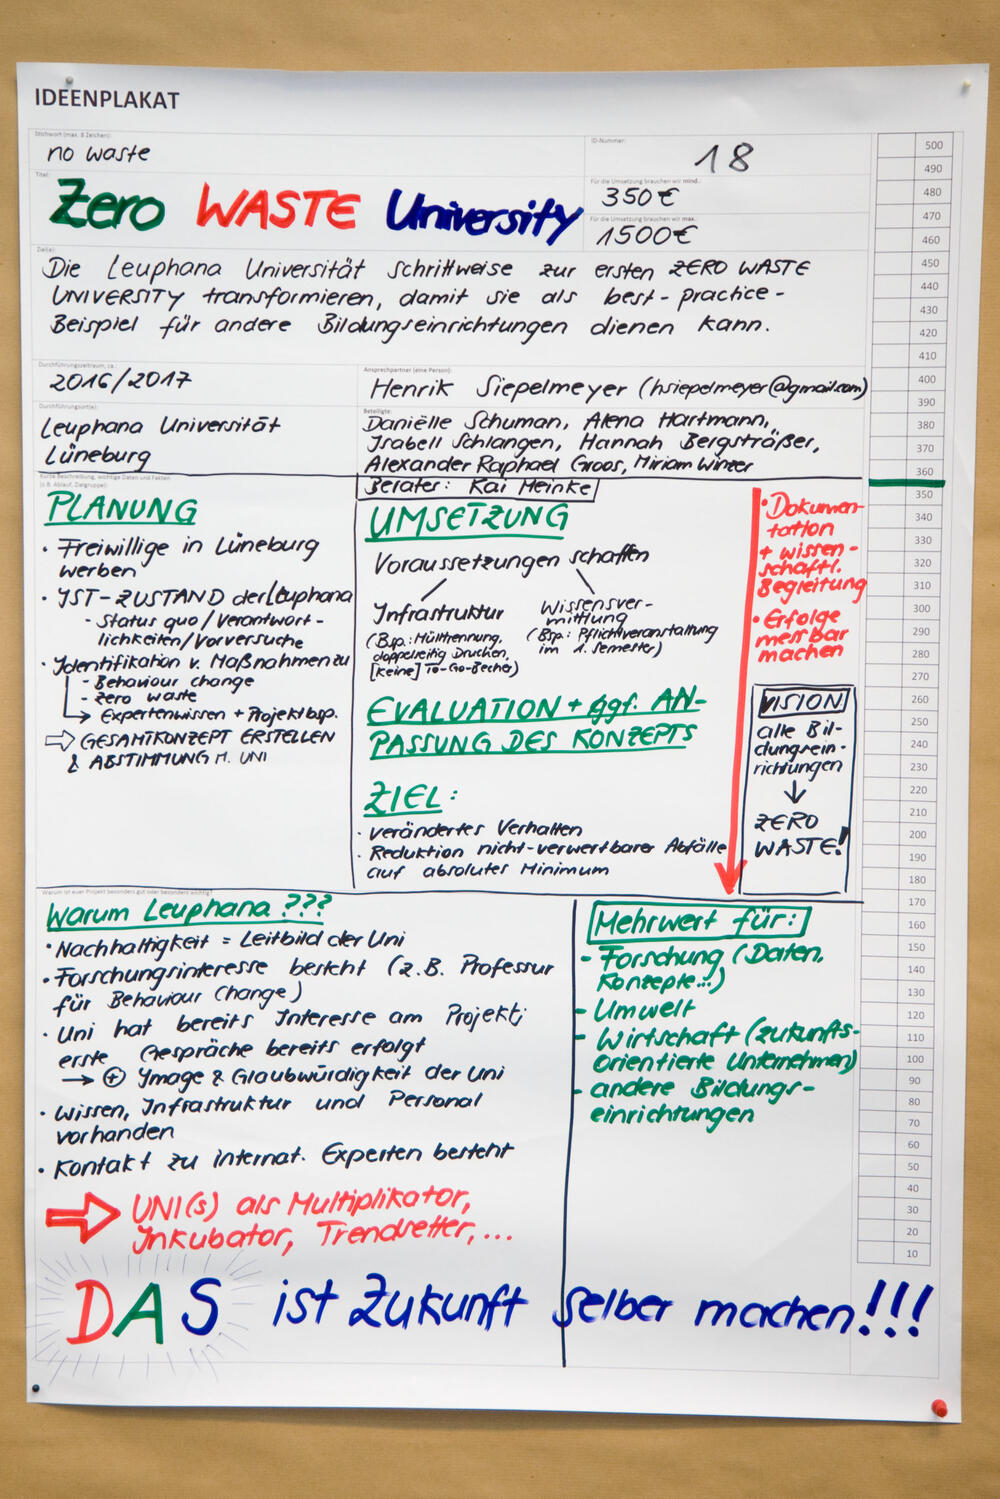 IDEENPLAKAT
Stichwort (max. 8 Zeichen):
no waste
ID-Nummer:
18
Titel:
Zero WASTE University
Für die Umsetzung brauchen wir mind.:
350€
Für die Umsetzung brauchen wir max.:
1500€
Ziel(e):
Die Leuphana Universität schrittweise zur ersten ZERO WASTE
UNIVERSITY transformieren, damit sie als best-practice-
Beispiel für andere Bildungseinrichtungen dienen kann.
Durchführungszeitraum, ca.:
2016/2017
Ansprechpartner (eine Person):
Henrik Siepelmeyer (hsiepelmeyer@gmail.com)
Durchführungsort(e):
Leuphana Universität
Lüneburg
Beteiligte:
Daniëlle Schuman, Alena Hartmann,
Isabell Schlangen, Hannah Bergsträßer,
Alexander Raphael Groos, Miriam Winter
Berater: Kai Meinke
Kurze Beschreibung, wichtige Daten und Fakten
(z.B. Ablauf, Zielgruppe):
PLANUNG
· Freiwillige in Lüneburg
werben
· IST-ZUSTAND der Leuphana
- Status quo/Verantwort-
lichkeiten/Vorversuche
· Identifikation v. Maßnahmen zu
- Behaviour change
- zero waste
→ Expertenwissen + Projektbsp.
⇒ GESAMTKONZEPT ERSTELLEN
& ABSTIMMUNG M. UNI
UMSETZUNG
Voraussetzungen schaffen
Infrastruktur
(Bsp.: Mülltrennung,
doppelseitig Drucken,
[keine] To-Go-Becher)
Wissensver-
mittlung
(Bsp.: Pflichtveranstaltung
im 1. Semester)
EVALUATION + ggf. AN-
PASSUNG DES KONZEPTS
ZIEL:
· verändertes Verhalten
· Reduktion nicht-verwertbarer Abfälle
auf absolutes Minimum
· Dokumen-
tation
+ wissen-
schaftl.
Begleitung
· Erfolge
messbar
machen
VISION
alle Bil-
dungsein-
richtungen
↓
ZERO
WASTE!
Warum ist euer Projekt besonders gut oder besonders wichtig?
Warum Leuphana ???
· Nachhaltigkeit = Leitbild der Uni
· Forschungsinteresse besteht (z.B. Professur
für Behaviour Change)
· Uni hat bereits Interesse am Projekt;
erste Gespräche bereits erfolgt
→ ⊕ Image & Glaubwürdigkeit der Uni
· Wissen, Infrastruktur und Personal
vorhanden
· Kontakt zu internat. Experten besteht
⇒ UNI(s) als Multiplikator,
Inkubator, Trendsetter,...
Mehrwert für:
- Forschung (Daten,
Konzepte...)
- Umwelt
- Wirtschaft (zukunfts-
orientierte Unternehmen)
- andere Bildungs-
einrichtungen
DAS ist Zukunft selber machen!!!
500
490
480
470
460
450
440
430
420
410
400
390
380
370
360
350
340
330
320
310
300
290
280
270
260
250
240
230
220
210
200
190
180
170
160
150
140
130
120
110
100
90
80
70
60
50
40
30
20
10